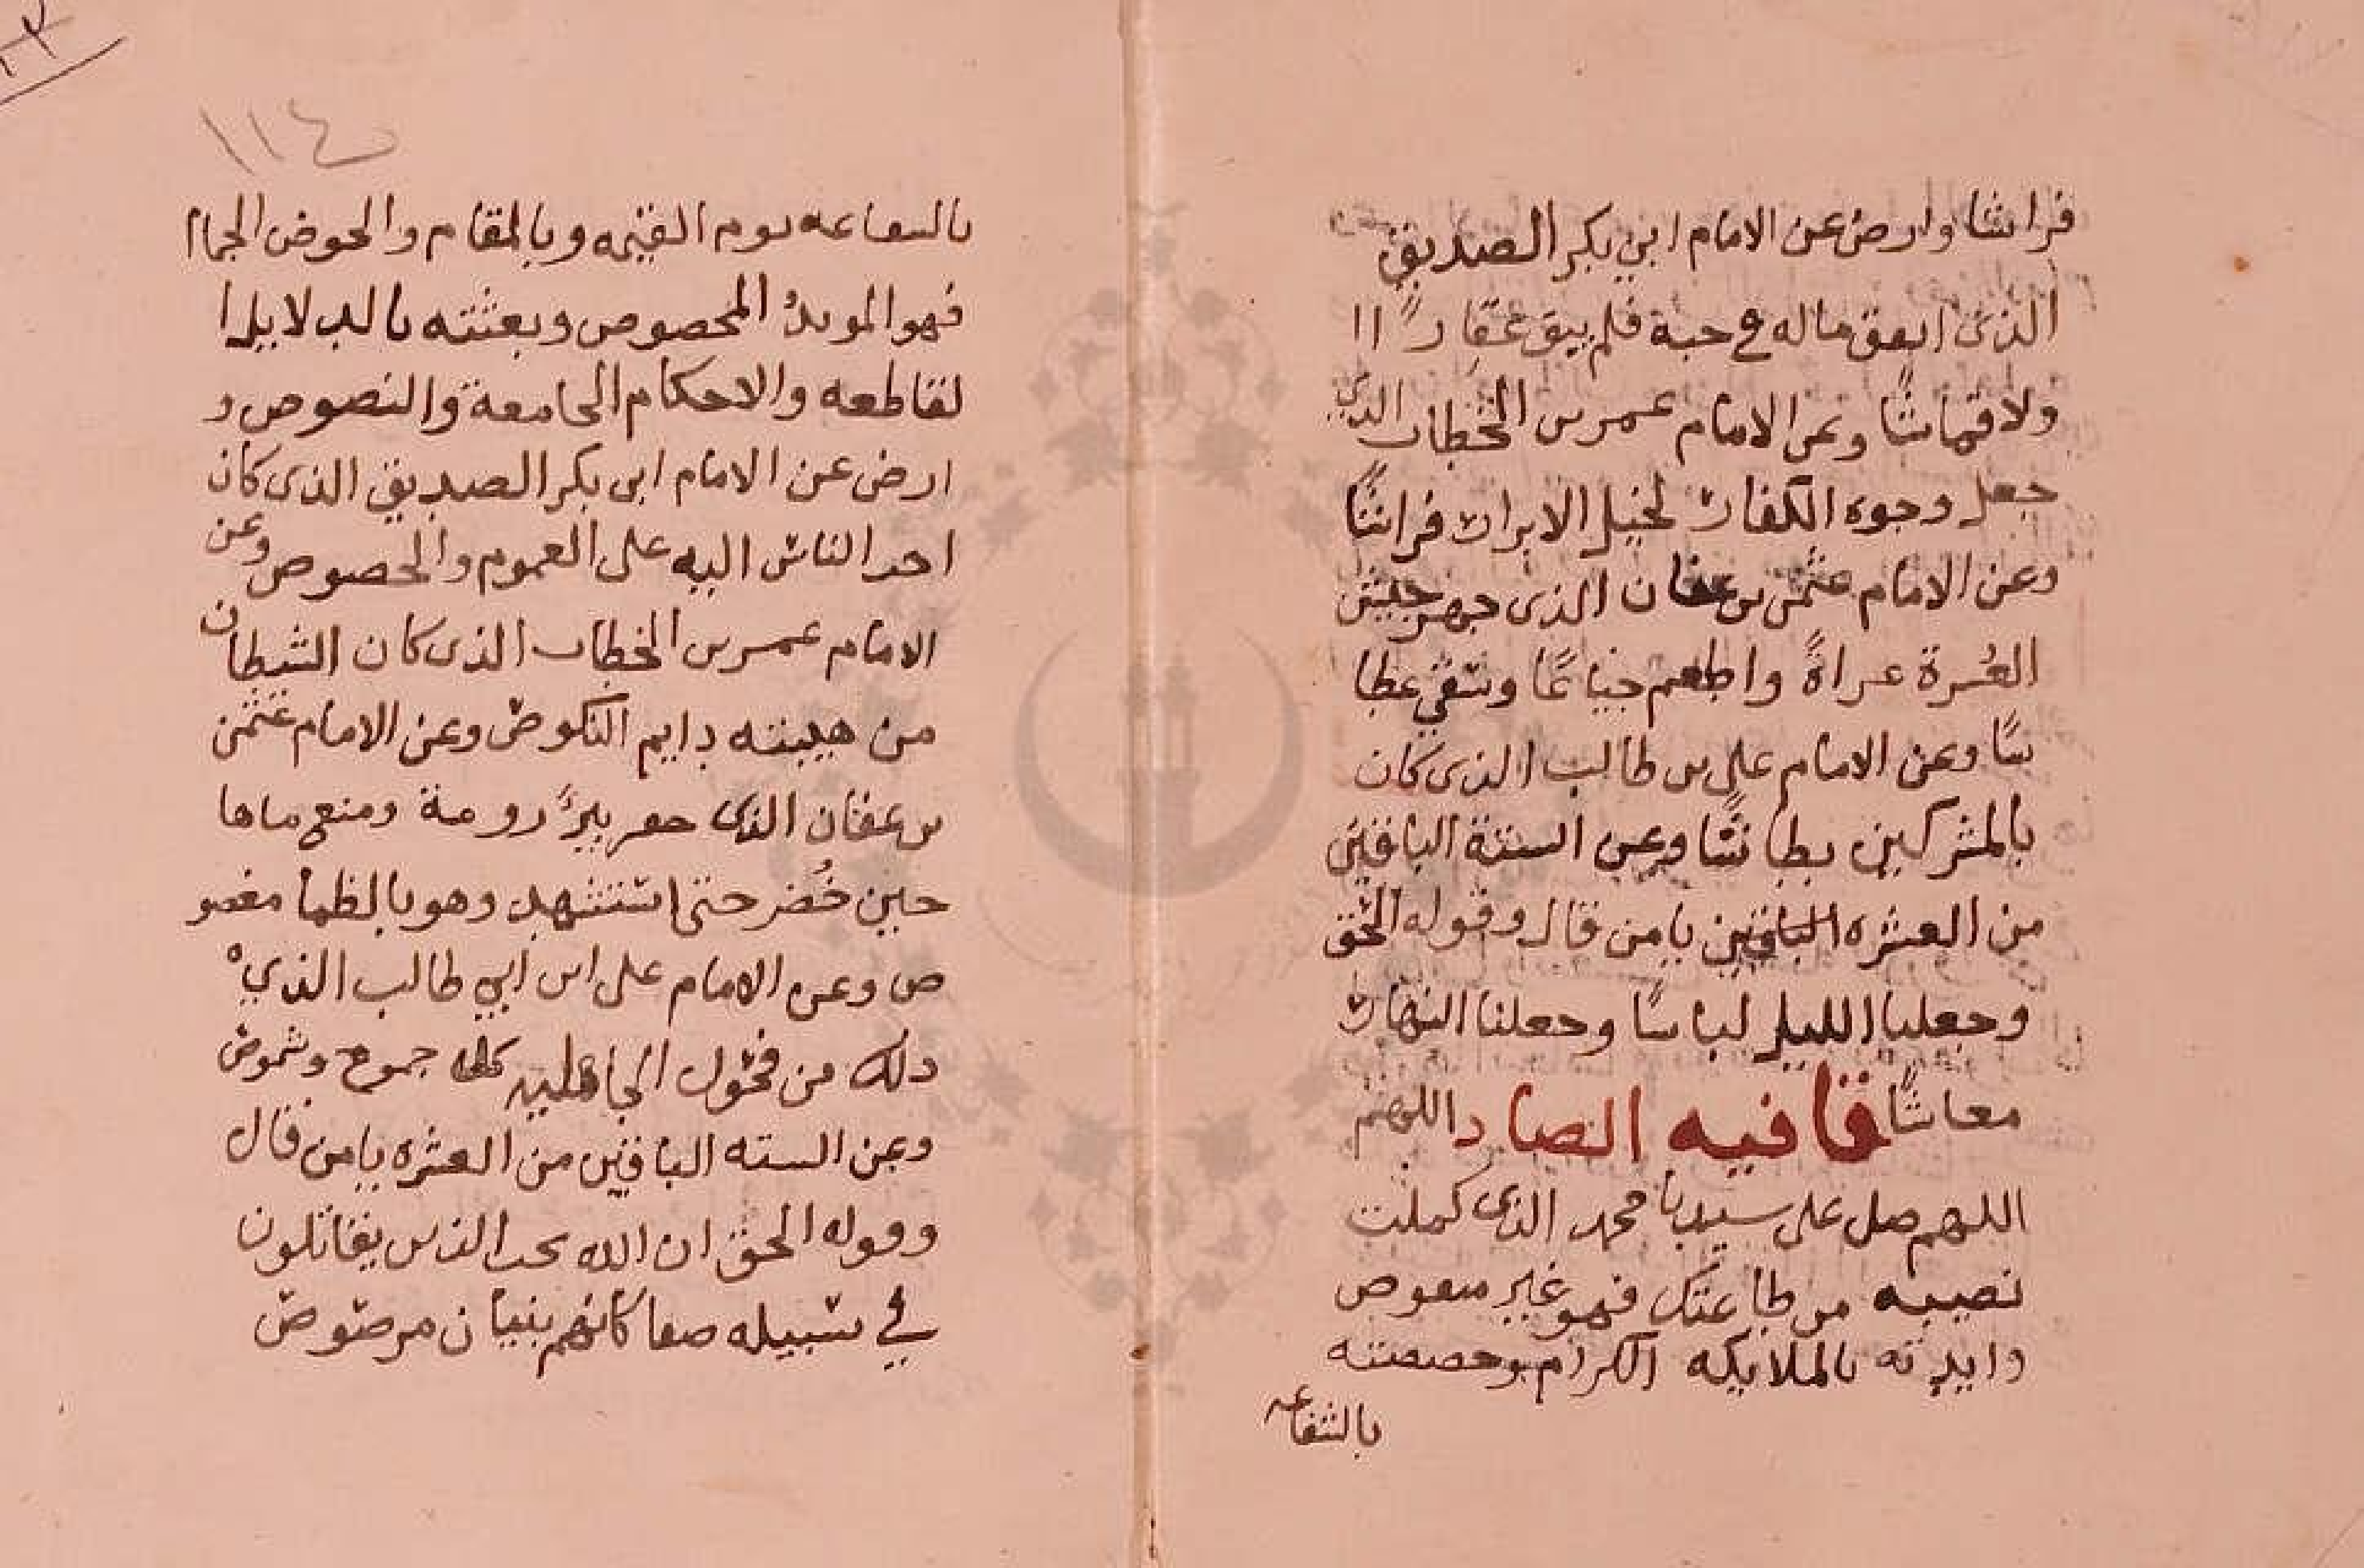 فراشا وارض عن الامام ابي بكر الصديق
الذي انفق ماله في حبة فلم يبق عقارًا
ولا قماشًا وعن الامام عمر بن الخطاب الذي
جعل وجوه الكفار لخيل الابرار فراشًا
وعن الامام عثمن بن عفان الذي جهز جيش
العُسرة عراةً واطعم جياعًا وسقي عطا
شًا وعن الامام علي بن طالب الذي كان
بالمشركين بطاشًا وعن الستة الباقين
من العشره الباقين يا من قال وقوله الحق
وجعلنا الليل لباسًا وجعلنا النهار
معاشًا قافيه الصاد اللهم
اللهم صل على سيدنا محمد الذي كملت
نصيبه من طاعتك فهو غير منقوص
وايدته بالملايكه الكرام وخصصته
بالشفاعه
١١٤
بالشفاعه يوم القيمه وبالمقام والحوض
فهو المويد المخصوص وبعثته بالدلايل ا
لقاطعه والاحكام الجامعة والنصوص و
ارض عن الامام ابي بكر الصديق الذي كان
احد الناس اليه على العموم والخصوص وعن
الامام عمر بن الخطاب الذي كان الشيطان
من هيبته دايم النكوص وعن الامام عثمن
بن عفان الذي حفر بيرً رومة ومنع ماها
حين حُضر حتى استشهد وهو بالظما مغصو
ص وعن الامام على ابن ابي طالب الذي
ذلك من فحول الجاهليه كل جموح وشموص
وعن السته الباقين من العشره يا من قال
وقوله الحق ان الله يحب الذين يقاتلون
في سبيله صفا كانهم بنيان مرصوص